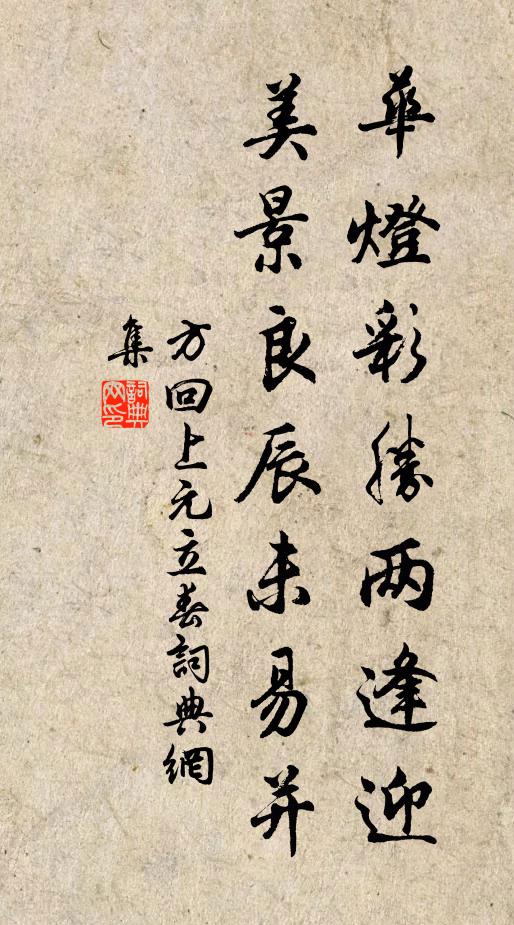 華燈彩勝两逢迎
美景良辰未易并
方回上元立春詞典網
集
詞典网印